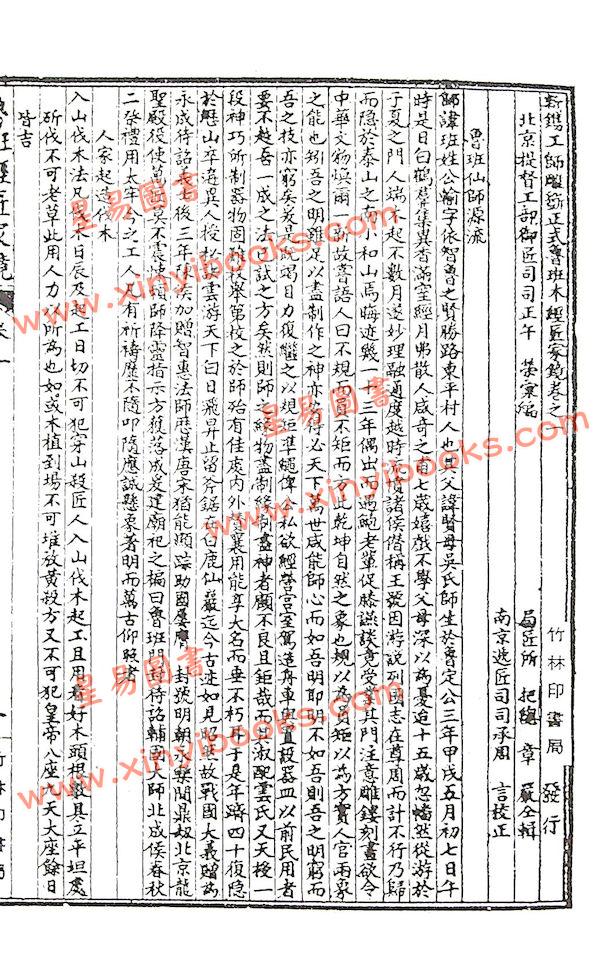 新鐫工師雕斲正式魯班木經匠家鏡卷之一
北京提督工部御匠司司正午 榮彙編
局匠所 把總 章 嚴仝輯
南京遞匠司司承周 言校正
竹林印書局 發行
魯班仙師源流
師諱班姓公輸字依智魯之賢勝路東平村人也其父諱賢母吳氏師生於魯定公三年甲戌五月初七日午
時是日白鶴羣集異香滿室經月弗散人咸奇之甫七歲嬉戲不學父母深以為憂迨十五歲忽幡然從游於
子夏之門人端木起不數月遂妙理融通度越時流憤諸侯僭稱王號因游說列國志在尊周而計不行乃歸
而隱於泰山之南小和山焉晦迹幾一十三年偶出而遇鮑老輩促膝讌談竟受業其門注意雕鏤刻畫欲令
中華文物煥爾一新故嘗語人曰不規而員不矩而方此乾坤自然之象也規以為員矩以為方實人官兩象
之能也矧吾之明雖足以盡制作之神亦安得必天下萬世咸能師心而如吾明耶明不如吾則吾之明窮而
吾之技亦窮矣爰是既竭目力復繼之以規矩準繩俾公私欲經營宮室駕造舟車與置設器皿以前民用者
要不越吾一成之法已試之方矣然則師之緣物盡制緣制盡神者顧不良且鉅哉而其淑配雲氏又天授一
段神巧所制器物固難枚舉第較之於師殆有佳處內外贊襄用能享大名而垂不朽耳于是年躋四十復隱
於歷山卒遘異人授秘訣雲游天下白日飛昇止留斧鋸在白鹿仙巖迄今古迹如見昭然故戰國大義贈為
永成待詔義後三年陳侯加贈智惠法師歷漢唐宋猶能顯蹤助國屢膺封號明朝永樂間鼎剏北京龍
聖殿役使萬匠莫不震悚賴師降靈指示方獲落成爰建廟祀之扁曰魯班門封待詔輔國大師北成侯春秋
二祭禮用太牢今之工人凡有祈禱靡不隨叩隨應誠懸象著明而萬古仰照者
人家起造伐木
入山伐木法凡伐木日辰及起工日切不可犯穿山殺匠人入山伐木起工且用看好木頭根數具立平坦處
斫伐不可老草此用人力以所為也如或木植到場不可堆放黃殺方又不可犯皇帝八座九天大座餘日
皆吉
魯班經匠家鏡 卷一
一 竹林印書局
星易圖書
www.xinyibooks.com
星易圖書
www.xinyibooks.com
星易圖書
www.xinyibooks.com